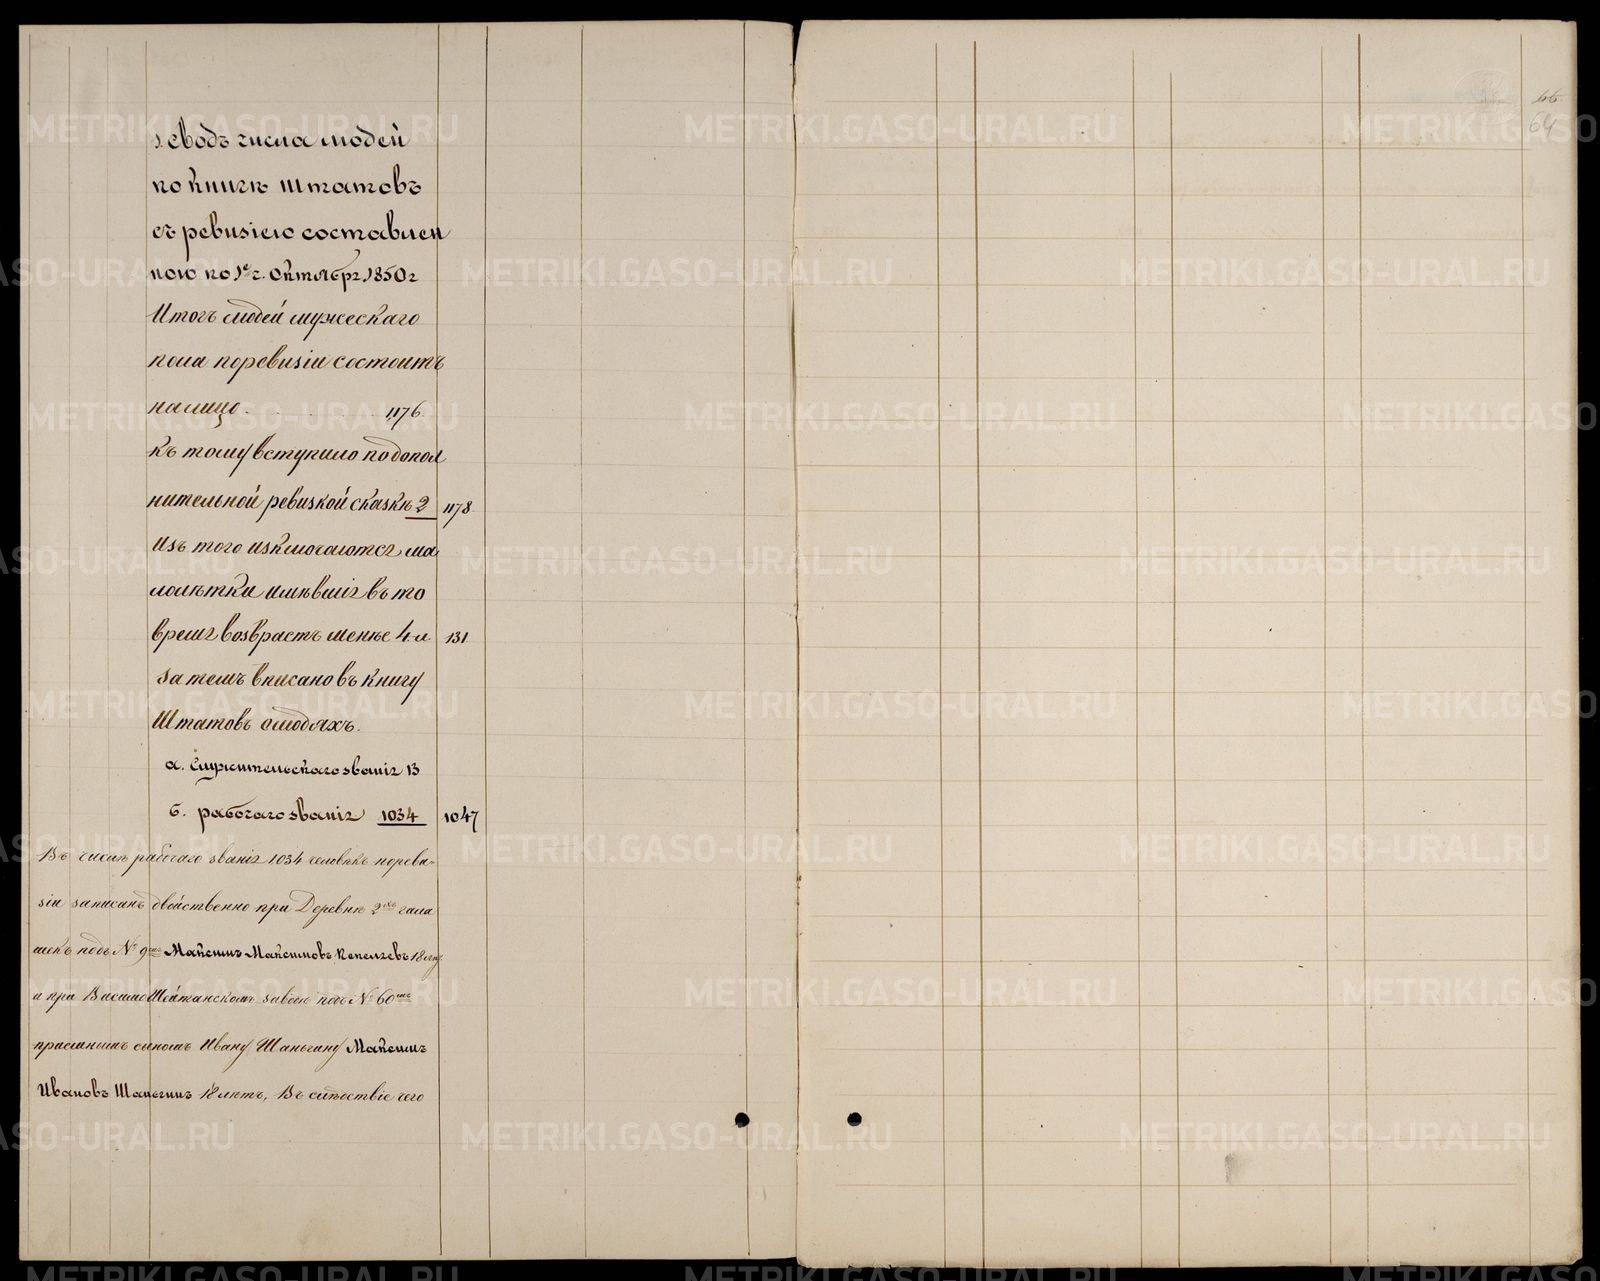 Сводъ числа людей
по книгѣ штатовъ
съ ревизіею составлен
ною по 1е ч. Октября 1850 г
Итогъ людей мужескаго
пола поревизіи состоитъ
налицо. 1176.
Къ тому вступило по допол
нительной ревизкой сказкѣ 2 1178
Изъ того изключаются ма
лолѣтки имѣвшія въ то
время возврастъ менѣе 4. л 131
За темъ вписано въ книгу
Штатовъ о людяхъ.
а. Служительскаго званія 13
б. рабочаго званія 1034 1047
Въ числѣ рабочаго званія 1034 человѣкъ пореви-
зіи записанъ двойственно при Деревнѣ 2хъ гала
шекъ подъ № 9мъ Максимъ Максимовъ Кепелевъ 18 лѣтъ
и при ВасильоШайтанскомъ заводѣ подъ № 60мъ
пріемнымъ сыномъ Ивану Шаньгину Максимъ
Ивановъ Шаньгинъ 18 лѣтъ, Въ слѣдствіе чего
66
64
METRIKI.GASO-URAL.RU